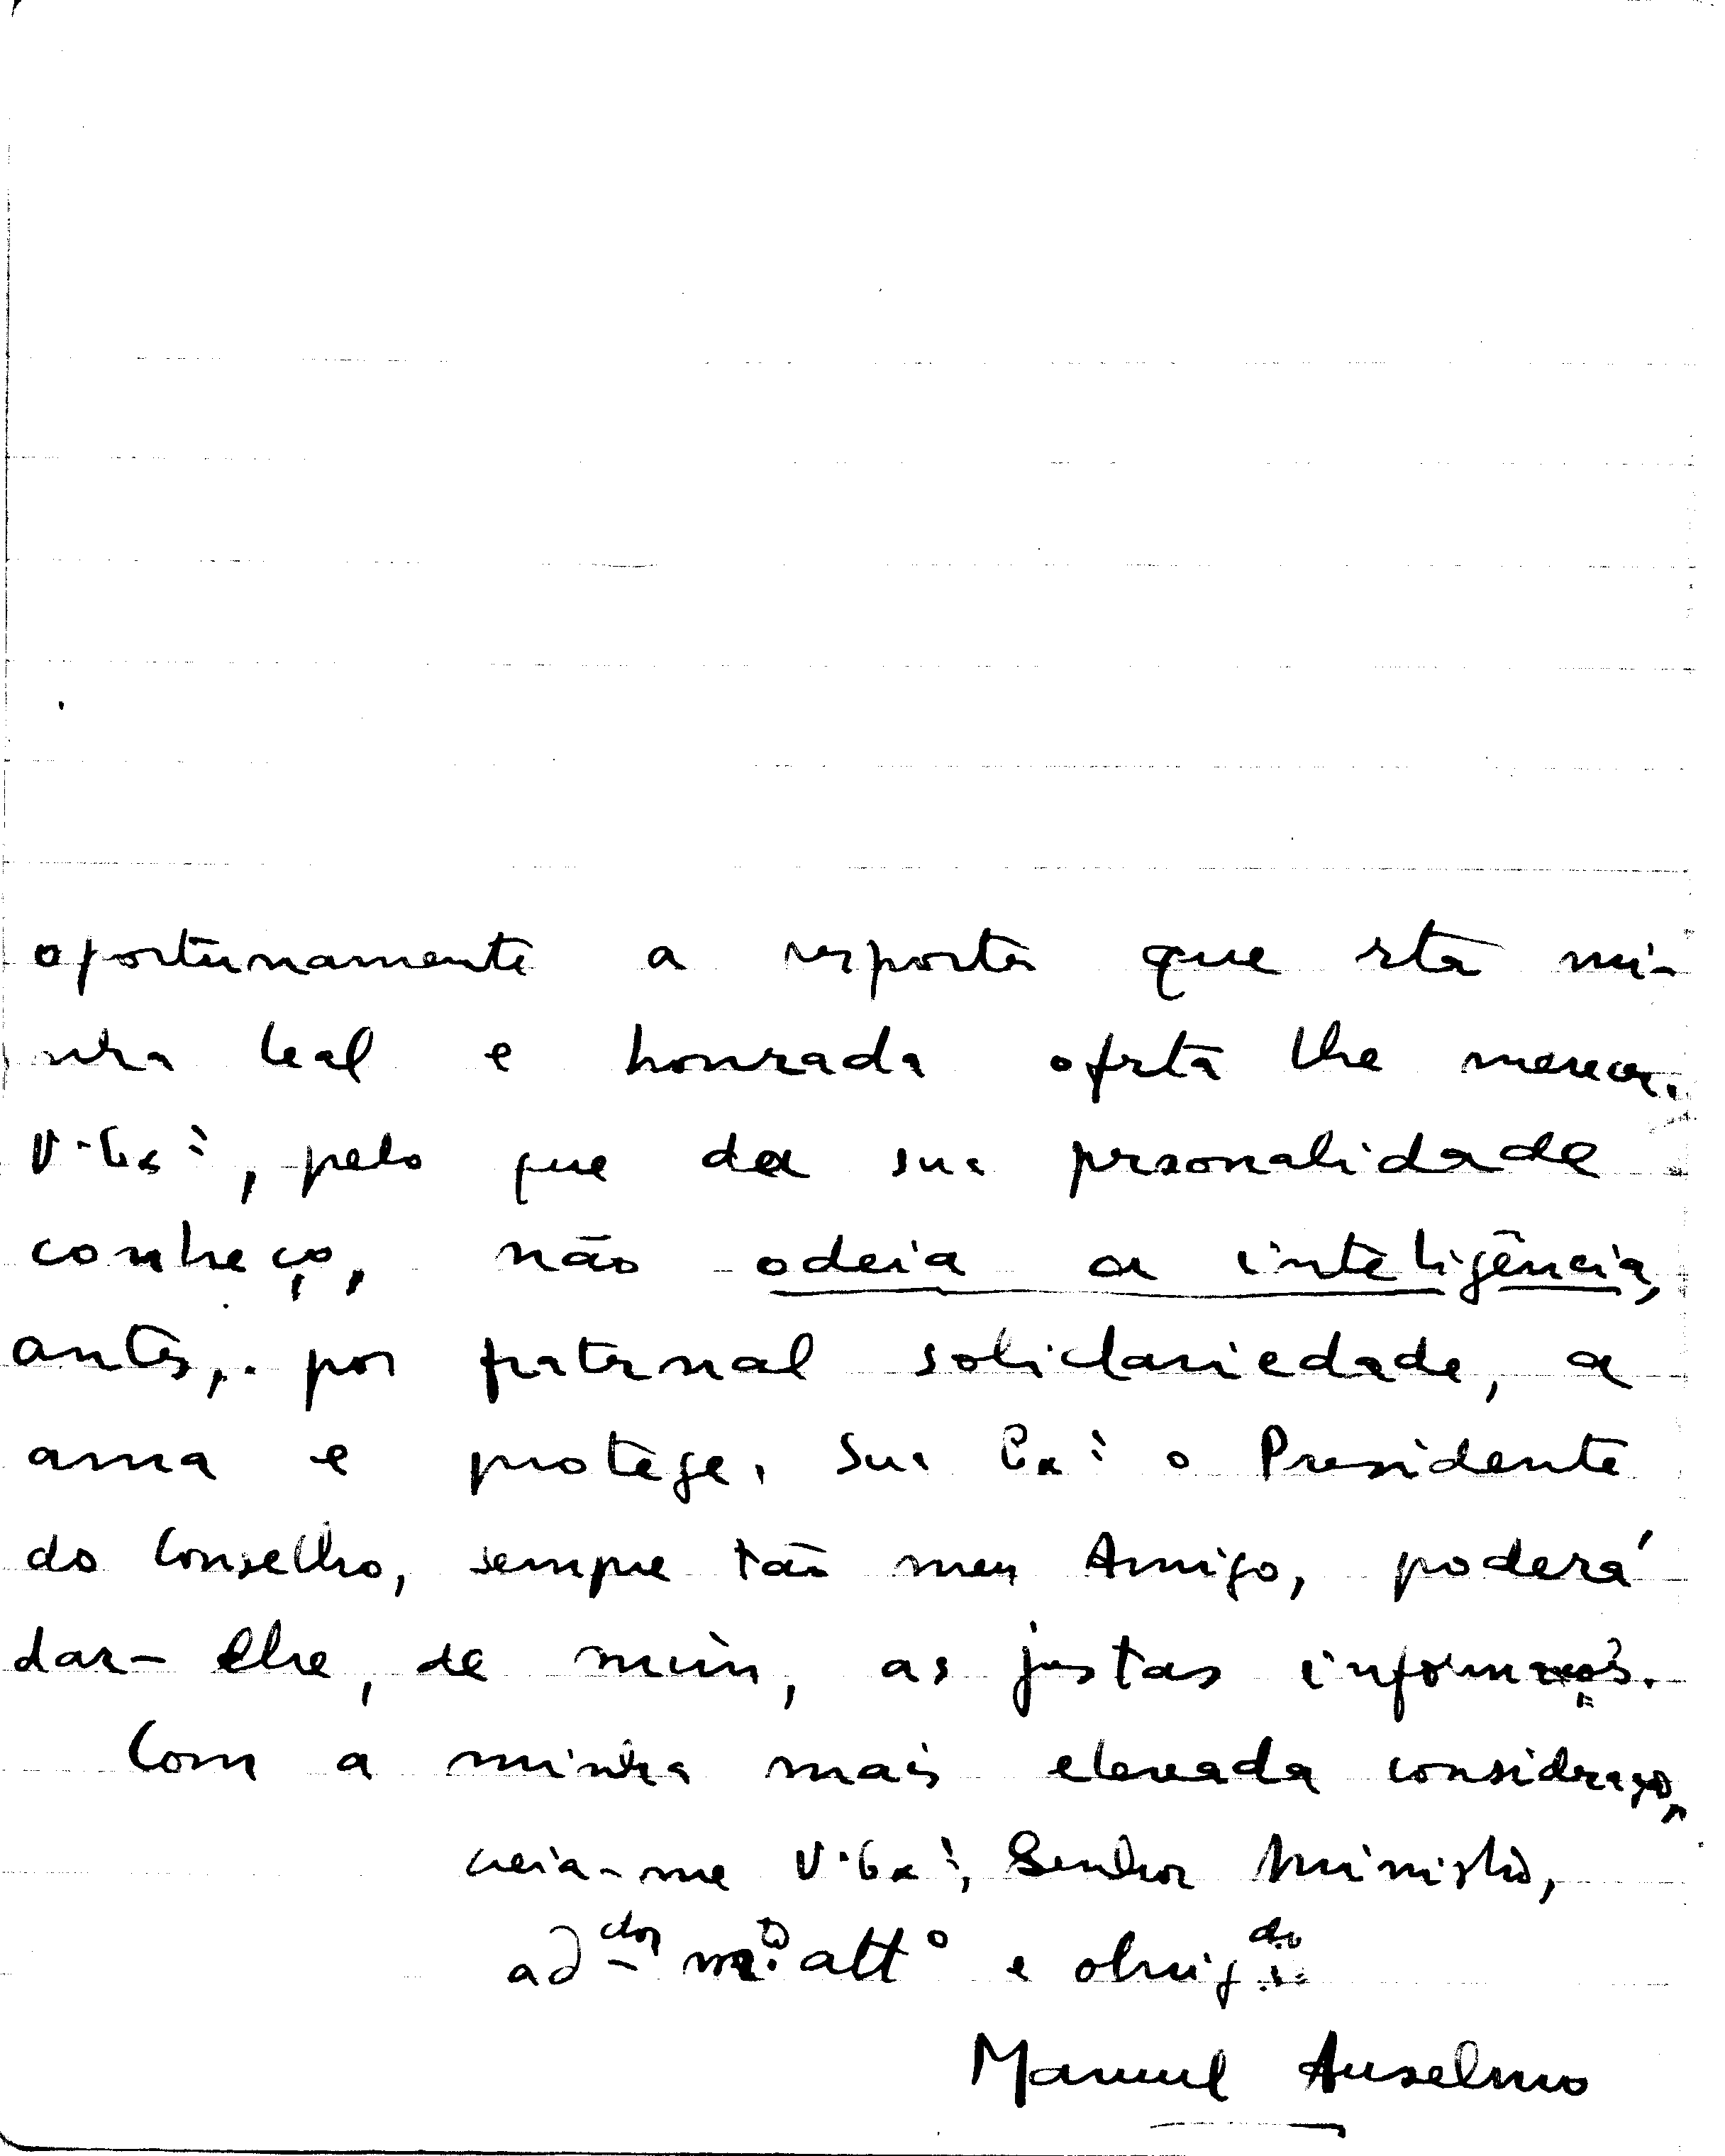 oportunamente a resposta que esta mi-
nha leal e honrada oferta lhe merecer.
V. Exª, pelo que da sua personalidade
conheço, não odeia a inteligência,
antes, por fraternal solidariedade, a
ama e protege. Sua Exª o Presidente
do Conselho, sempre tão meu Amigo, poderá
dar-lhe, de mim, as justas informações.
Com a minha mais elevada consideração,
creia-me V. Exª, Senhor Ministro,
adᵈᵒʳ mᵗᵒ attº e obrigᵈᵒ
Manuel Anselmo